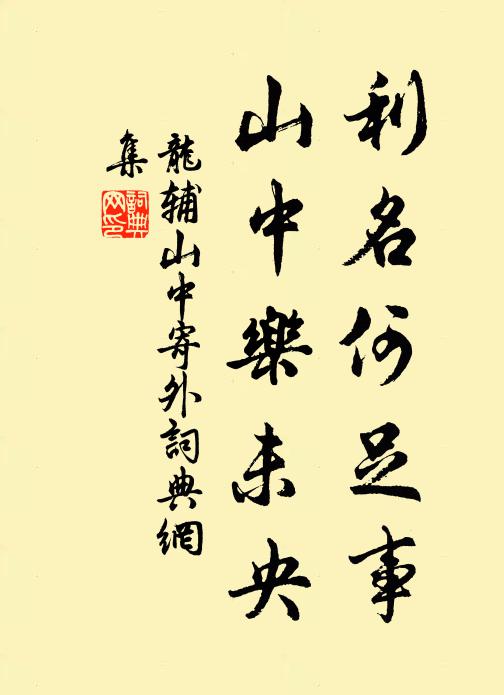 利名何足事
山中樂未央
龍辅山中寄外詞典網
集
詞典
网印